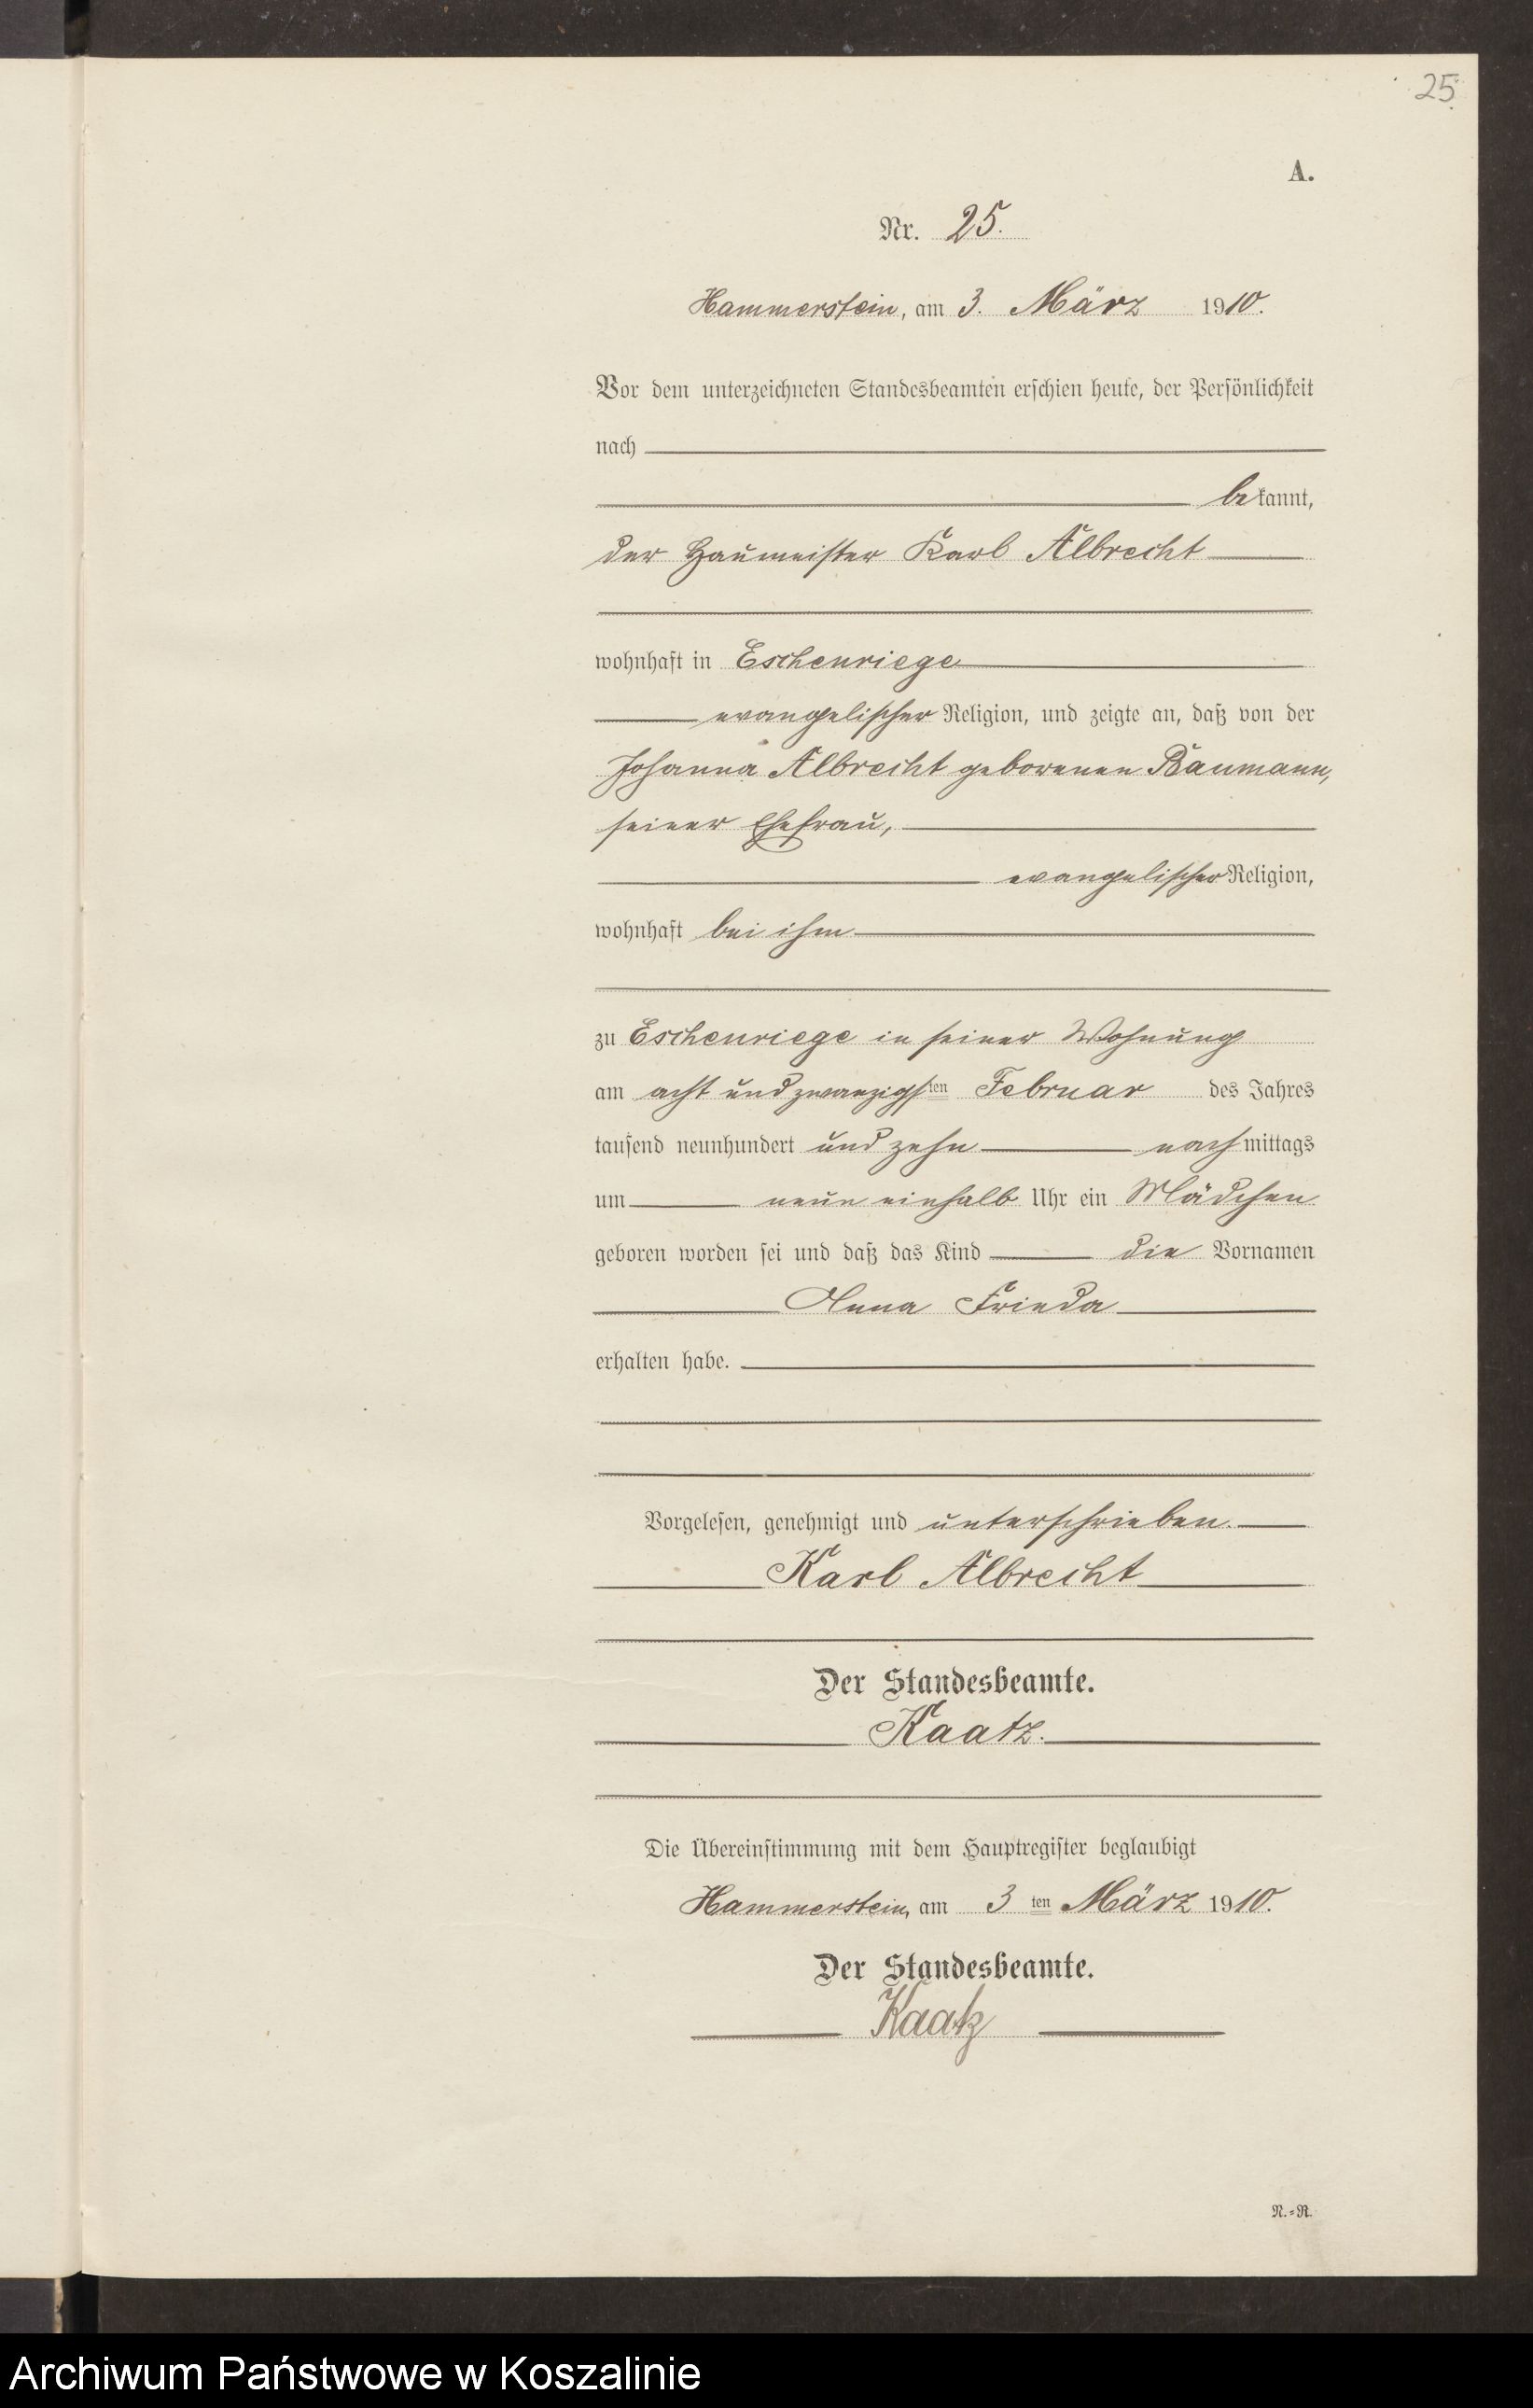 25.
A.
Nr. 25.
Hammerstein, am 3. März 1910.
Vor dem unterzeichneten Standesbeamten erschien heute, der Persönlichkeit
nach
bekannt,
der Haumeister Karl Albrecht
wohnhaft in Eschenriege
evangelischer Religion, und zeigte an, daß von der
Johanna Albrecht geborenen Baumann,
seiner Ehefrau,
evangelischer Religion,
wohnhaft bei ihm
zu Eschenriege in seiner Wohnung
am acht und zwanzigsten Februar des Jahres
tausend neunhundert und zehn nachmittags
um neun einhalb Uhr ein Mädchen
geboren worden sei und daß das Kind die Vornamen
Anna Frieda
erhalten habe.
Vorgelesen, genehmigt und unterschrieben.
Karl Albrecht
Der Standesbeamte.
Kaatz.
Die Übereinstimmung mit dem Hauptregister beglaubigt
Hammerstein, am 3ten März 1910.
Der Standesbeamte.
Kaatz
N.=R.
Archiwum Państwowe w Koszalinie